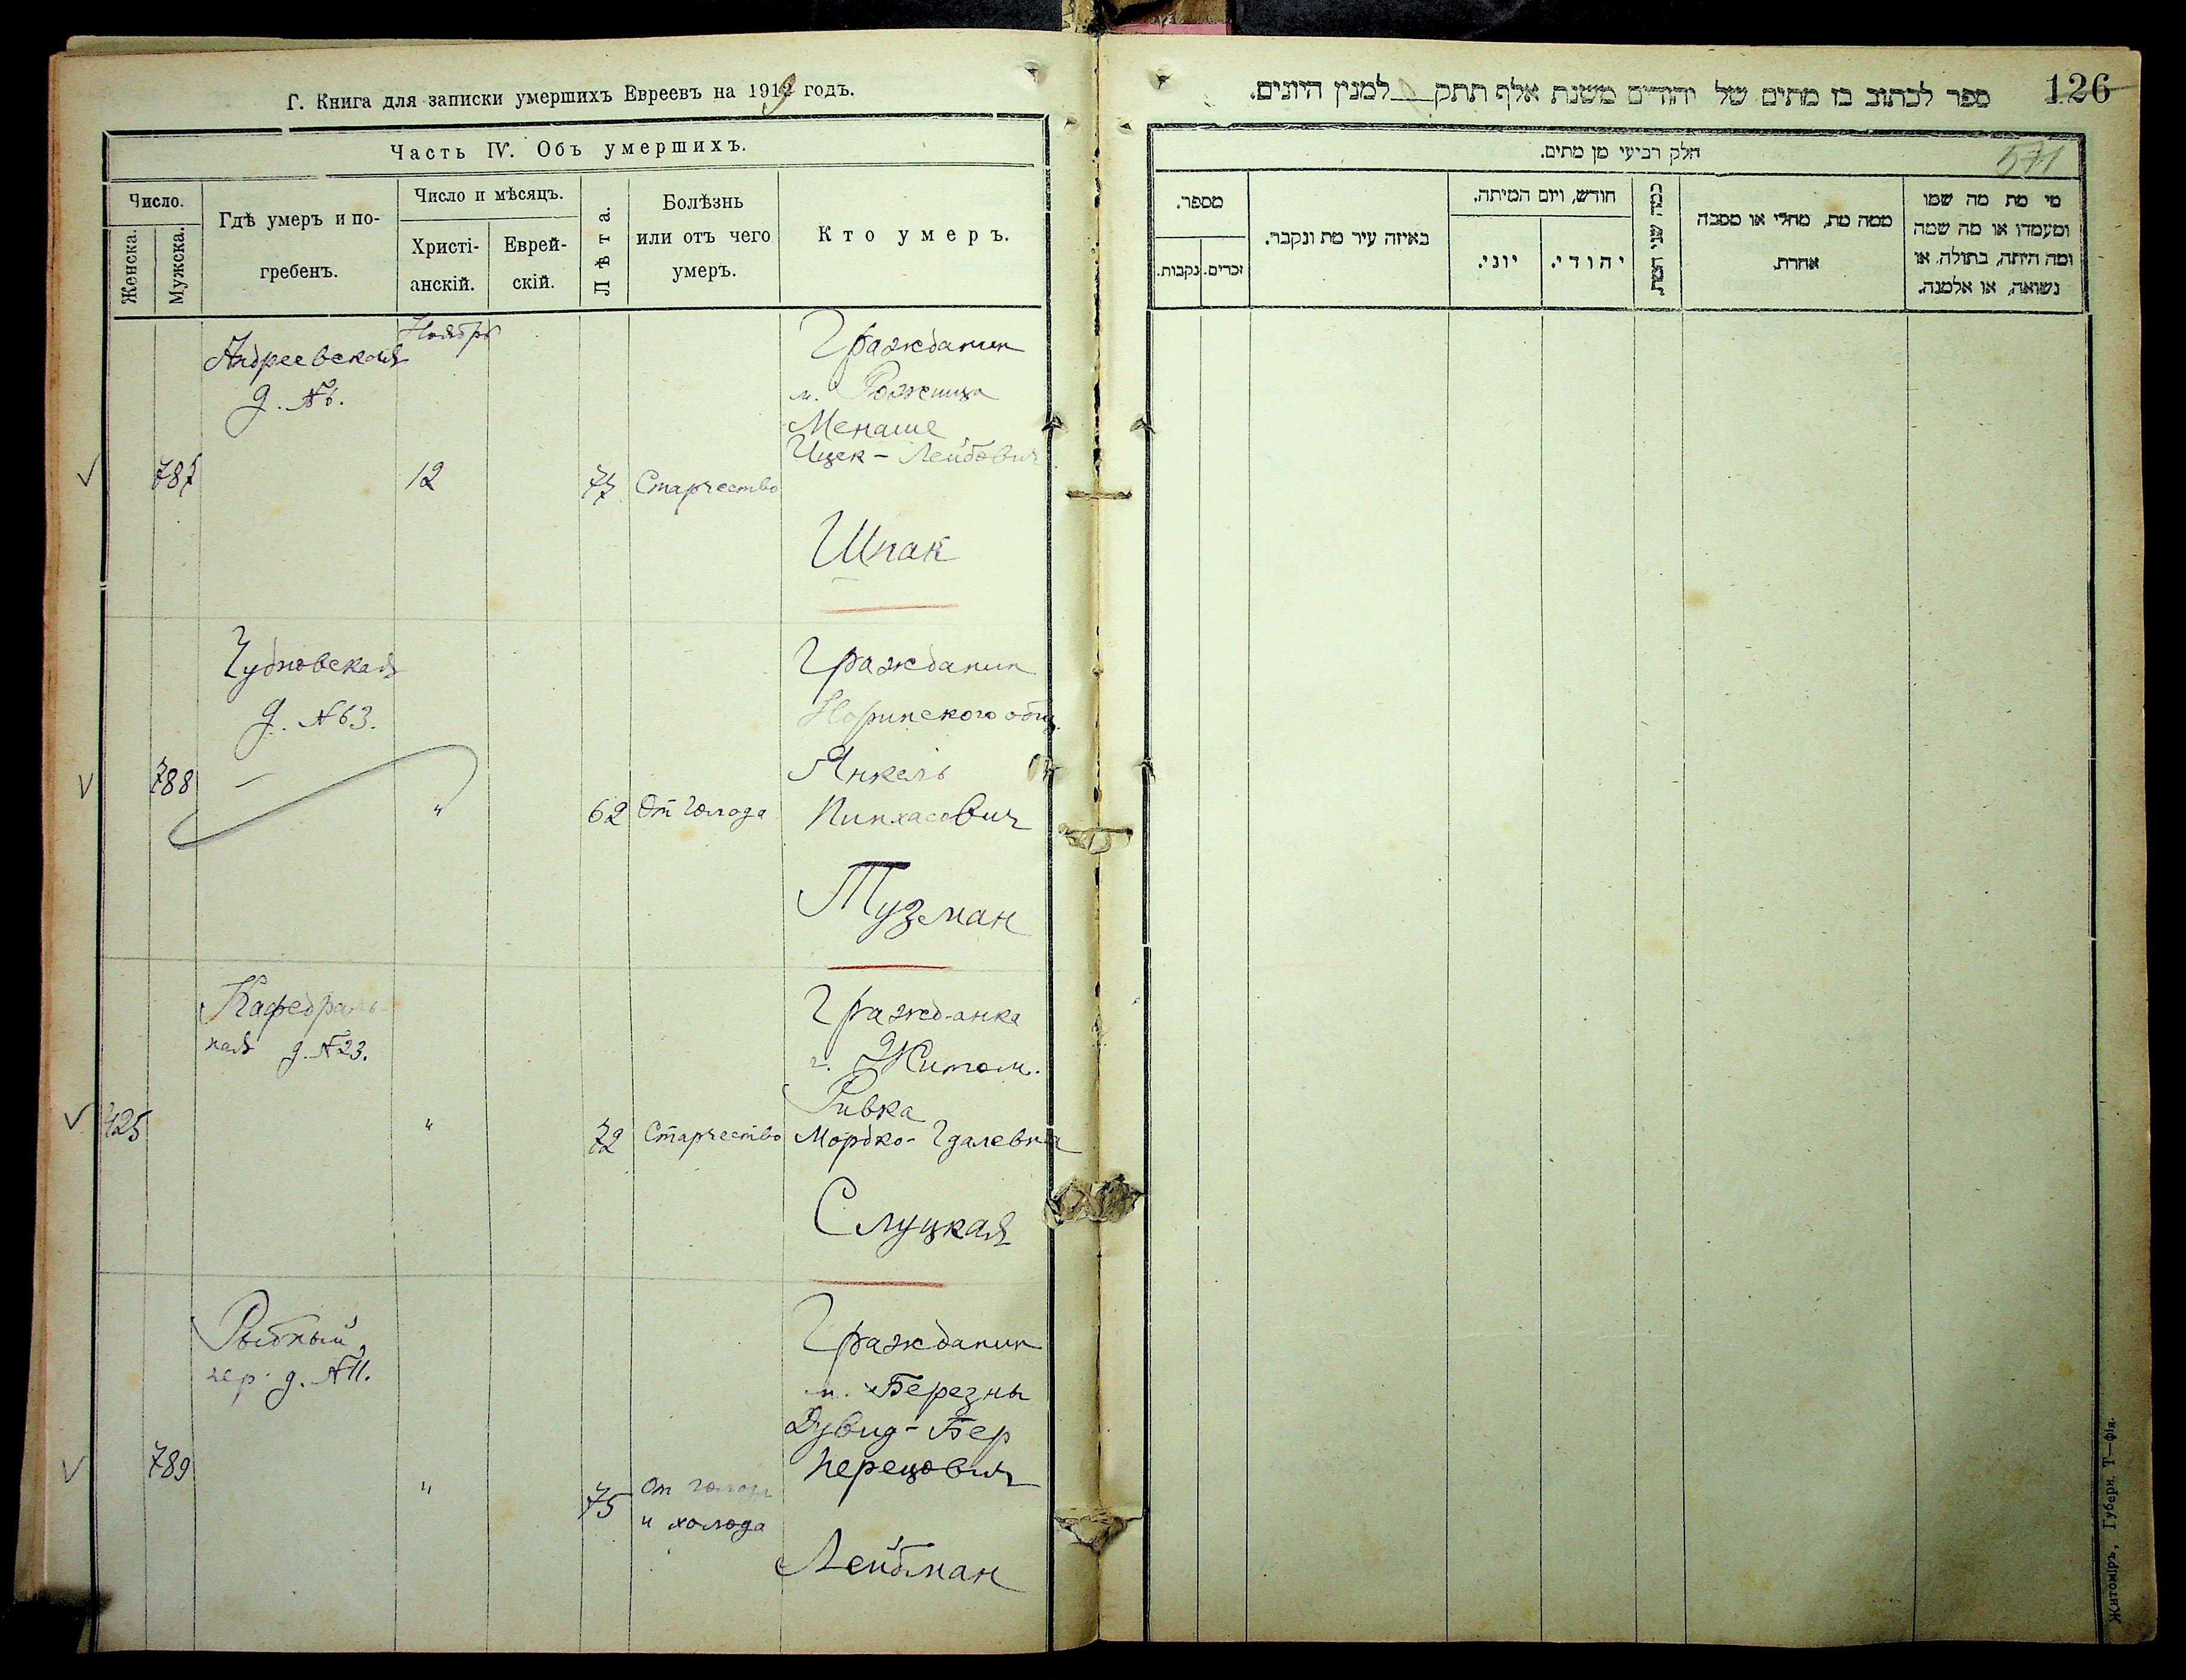 Г. Книга для записки умершихъ Евреевъ на 1919 годъ.
Часть IV. Объ умершихъ.
Число.
Женска.
Мужска.
Гдѣ умеръ и по-
гребенъ.
Число и мѣсяцъ.
Христі-
анскій.
Еврей-
скій.
Лѣта.
Болѣзнь
или отъ чего
умеръ.
Кто умеръ.
Андреевская
д. №6.
Ноябрь
787
12
77
Старчество
Гражданин
м. Рожища
Менаше
Ицек-Лейбович
Шпак
Чудновская
д. №63.
788
"
62
От голода
Гражданин
Норинского общ.
Янкель
Пинхасович
Тузман
Кафедраль-
ная д. №23.
425
"
72
Старчество
Гражданка
г. Житом.
Ривка
Мордко-Гдалевна
Слуцкая
Рыбный
пер. д. №11.
789
"
75
От голода
и холода
Гражданин
м. Березны
Дувид-Бер
Перецович
Лейбман
126
ספר לכתוב בו מתים של יהודים משנת אלף תתק___למנין היונים.
571
חלק רביעי מן מתים.
מספר.
נקבות.
זכרים.
באיזה עיר מת ונקבר.
חודש, ויום המיתה.
יוני.
יהודי.
כמה שני המת.
ממה מת, מחלי או מסבה
אחרת.
מי מת מה שמו
ומעמדו או מה שמה
ומה היתה, בתולה, או
נשואה, או אלמנה.
Житоміръ, Губерн. Т—фія.